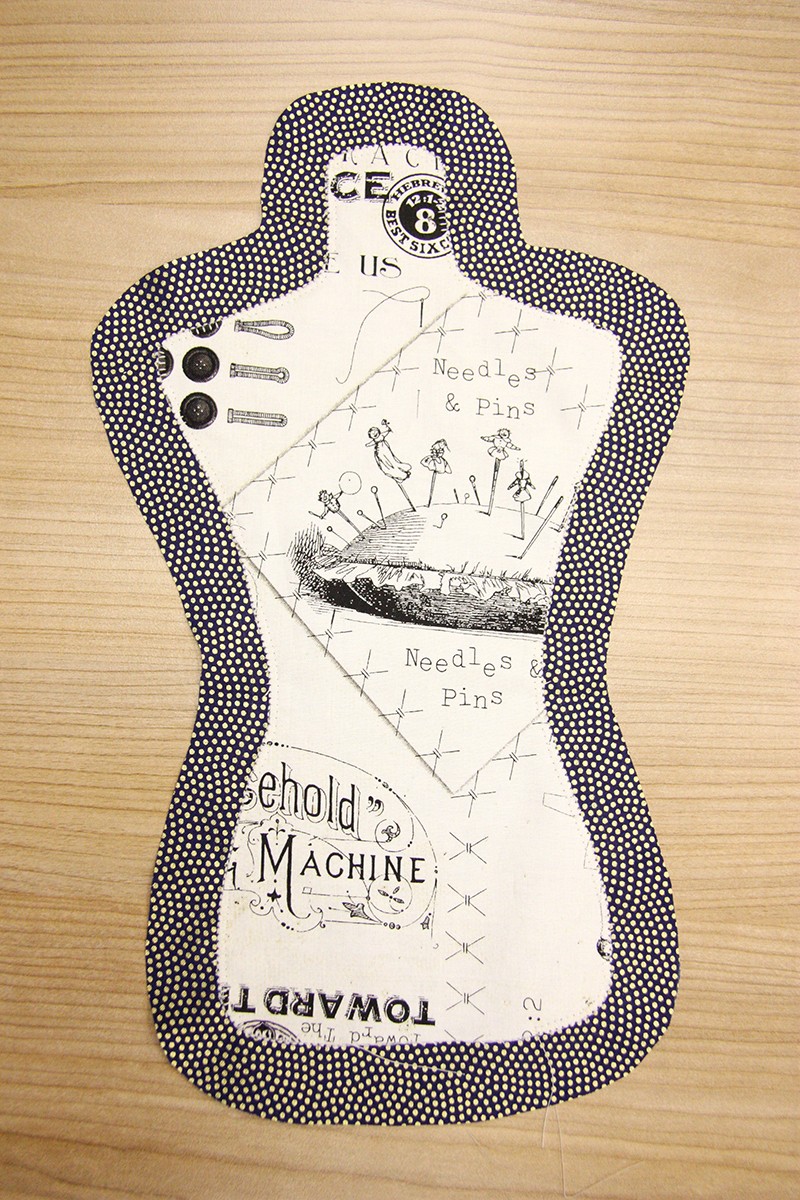 RACT
CE
HEBRE
12:1
8
BEST SIX C
E US
Needles
& Pins
Needles &
Pins
ehold"
MACHINE
TOWARD T
Toward The